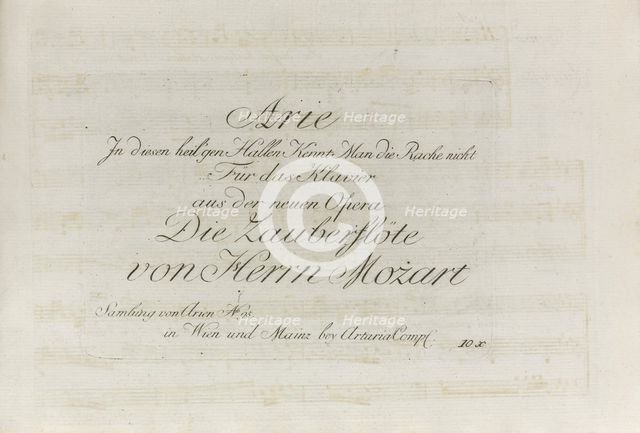 Arie
In diesen heil'gen Hallen Kennt Man die Rache nicht
Für das Klavier
aus der neuen Opera
Die Zauberflöte
von Herrn Mozart
Samlung von Arien No 95
in Wien und Mainz bey Artaria Comp.
10 x
Heritage
Heritage
Heritage
Heritage
Heritage
Heritage
Heritage
Heritage